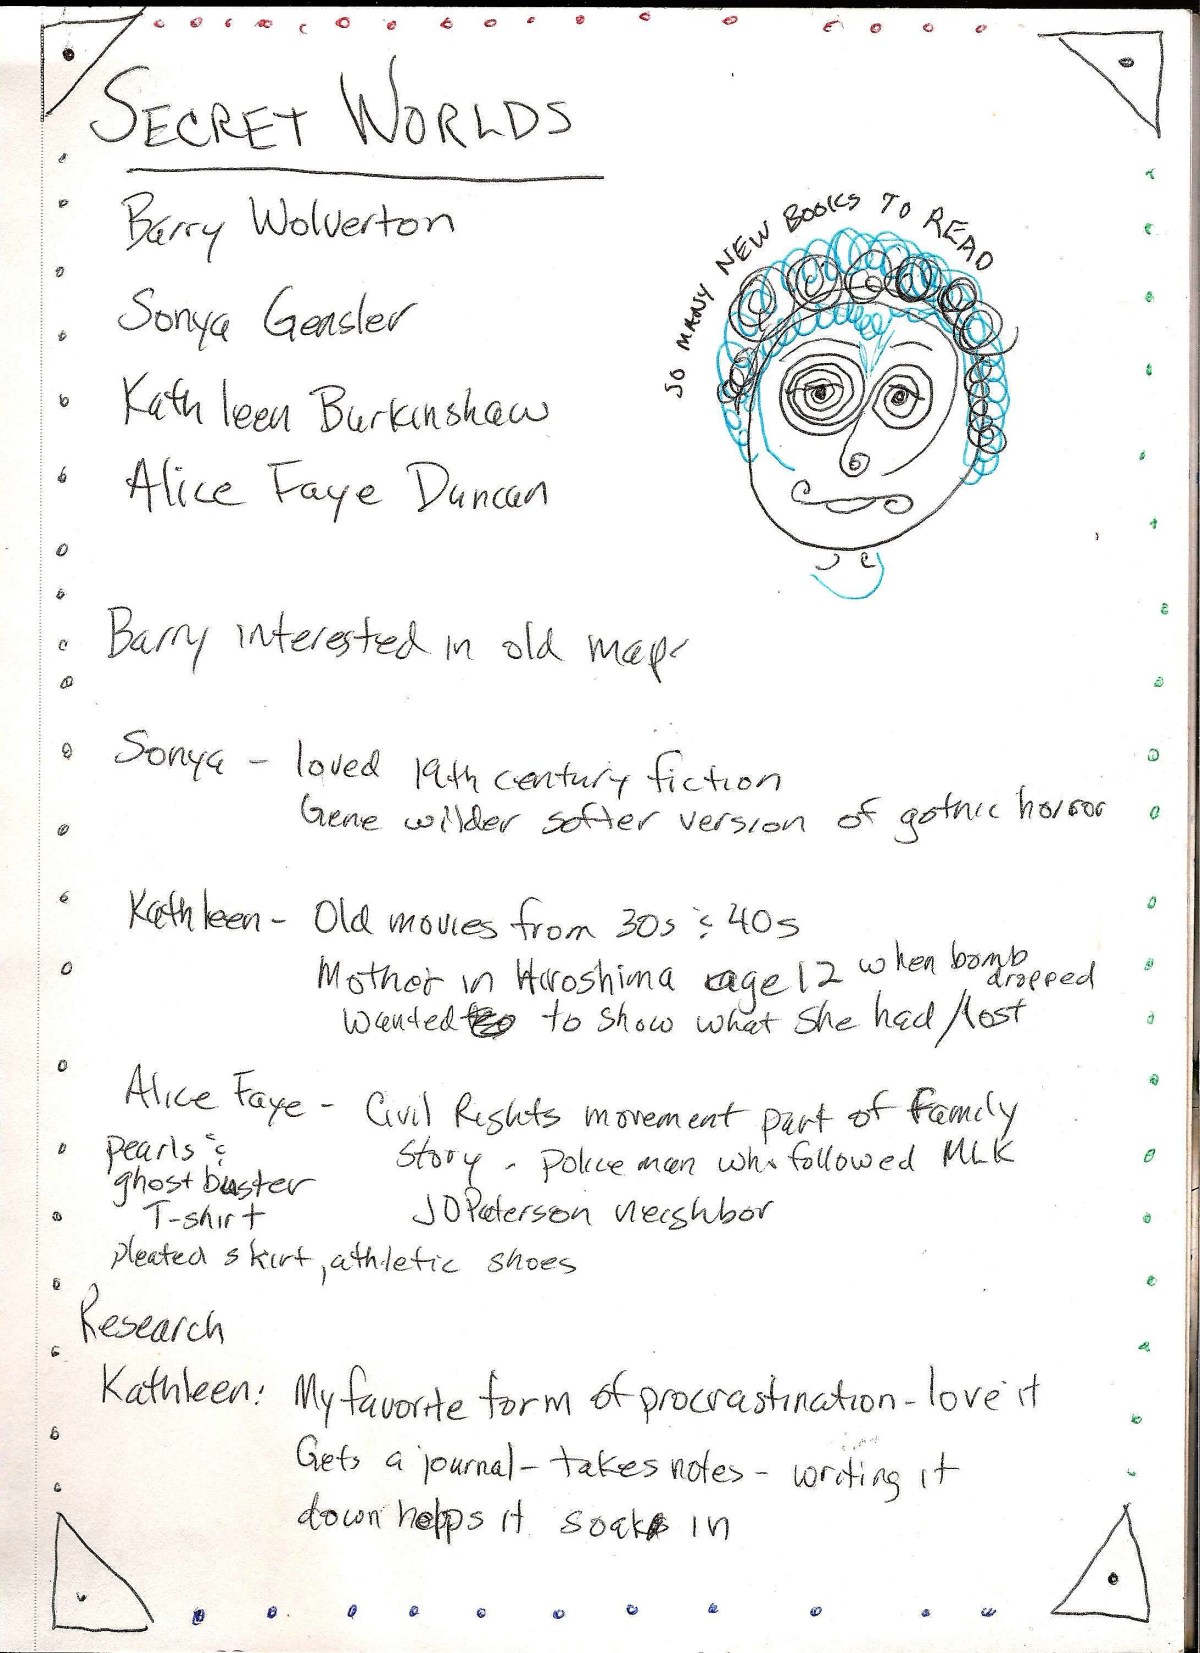 SECRET WORLDS
Barry Wolverton
Sonya Gensler
Kathleen Burkinshaw
Alice Faye Duncan
SO MANY NEW BOOKS TO READ
Barry interested in old maps
Sonya - loved 19th century fiction
Gene wilder softer version of gothic horror
Kathleen - Old movies from 30s & 40s
Mother in Hiroshima age 12 when bomb dropped
Wanted to show what she had/lost
Alice Faye - Civil Rights movement part of Family
story - policeman who followed MLK
JO Paterson neighbor
pearls &
ghostbuster
T-shirt
pleated skirt, athletic shoes
Research
Kathleen: My favorite form of procrastination - love it
Gets a journal - takes notes - writing it
down helps it soak in